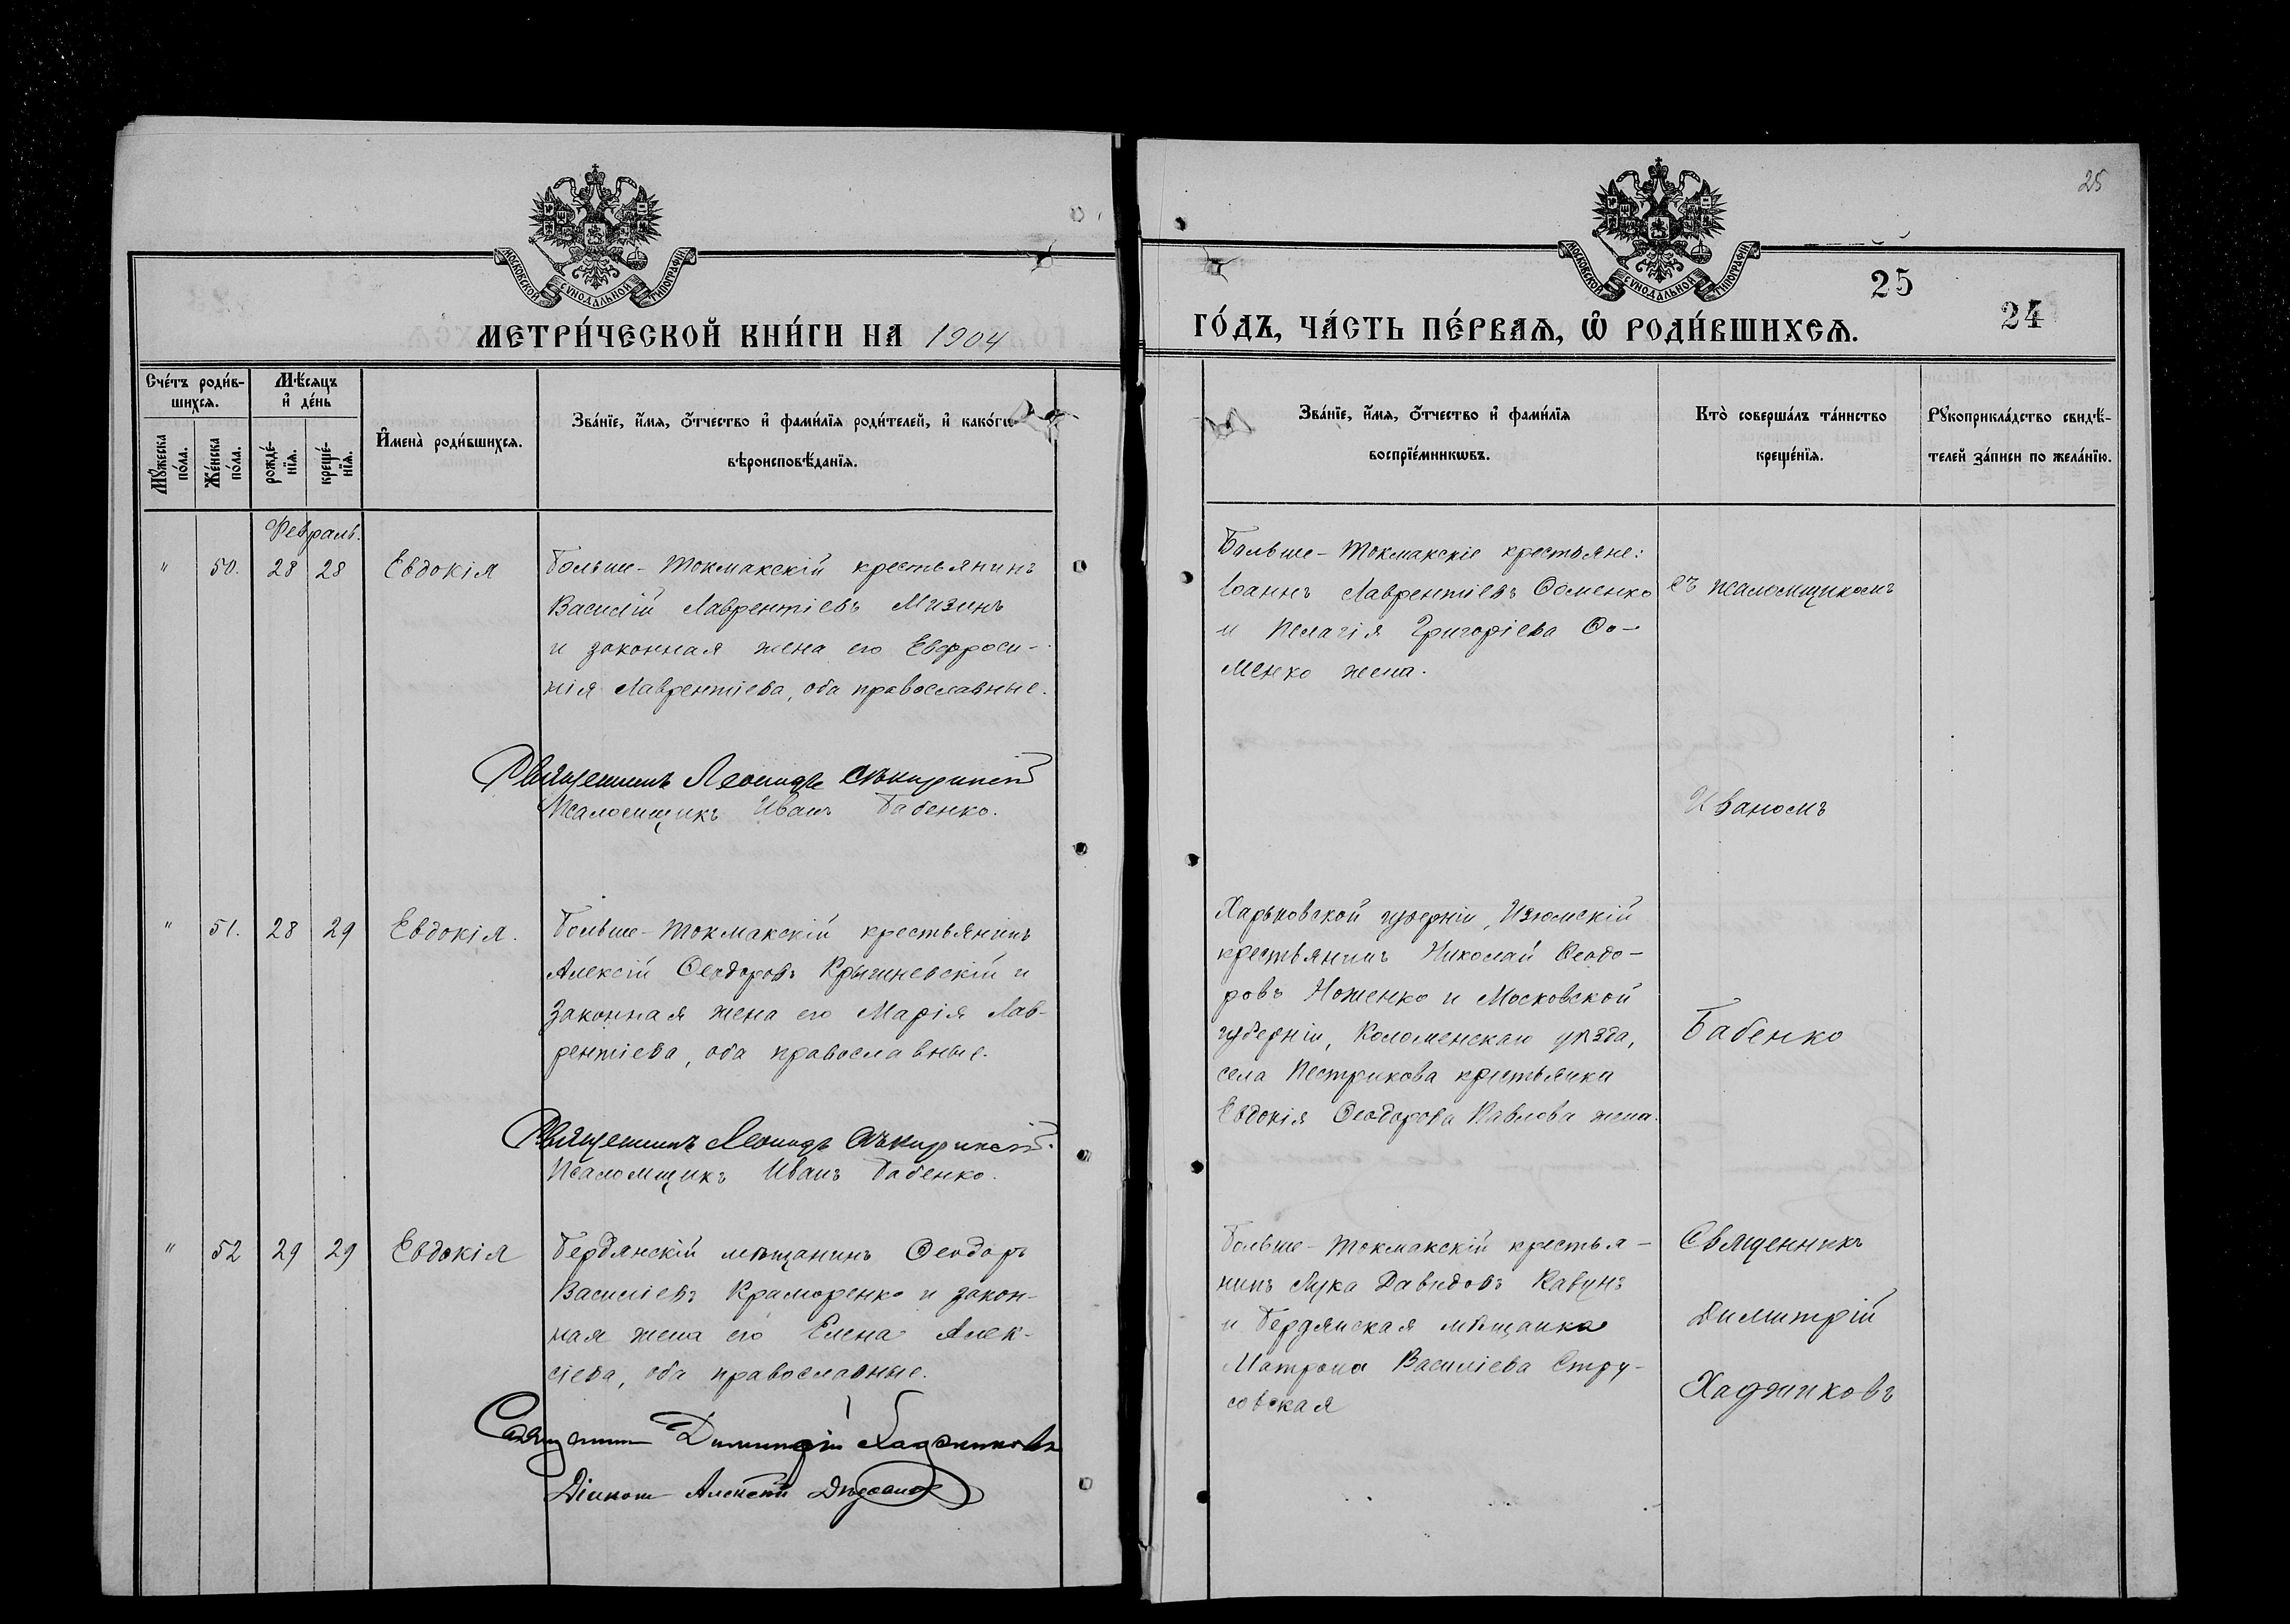 25
МОСКОВСКОЙ СУНОДАЛЬНОЙ ТИПОГРАФІИ
МЕТРИ́ЧЕСКОЙ КНИ́ГИ НА 1904
Сче́тъ роди́в-
шихсѧ.
Мѣ́сѧцъ
и҆ де́нь
Мꙋ́жеска
по́ла.
Же́нска
по́ла.
рожде́-
нїѧ.
креще́-
нїѧ.
И҆мена̀ роди́вшихсѧ.
Зва́нїе, и҆́мѧ, ѻ҆́тчество и҆ фами́лїѧ роди́телей, и҆ како́гѡ
вѣроисповѣ́данїѧ.
Февраль.
" 50. 28 28 Евдокія
Больше-Токмакскій крестьянинъ
Василій Лаврентіевъ Мизинъ
и законная жена его Евфроси-
нія Лаврентіева, оба православные.
Священникъ Леонидъ
Псаломщикъ Иванъ Бабенко.
" 51. 28 29 Евдокія.
Больше-Токмакскій крестьянинъ
Алексій Ѳеодоровъ Крыжневскій и
законная жена его Марія Лав-
рентіева, оба православные.
Священникъ Леонидъ
Псаломщикъ Иванъ Бабенко.
" 52 29 29 Евдокія
Бердянскій мѣщанинъ Ѳеодоръ
Василіевъ Краморенко и закон-
ная жена его Елена Алек-
сіева, оба православные.
Священникъ Димитрій Хаджиновъ
Діаконъ Алексѣй
МОСКОВСКОЙ СУНОДАЛЬНОЙ ТИПОГРАФІИ
25
24
ГО́ДЪ, ЧА́СТЬ ПЕ́РВАѦ, Ѡ҆ РОДИ́ВШИХСѦ.
Зва́нїе, и҆́мѧ, ѻ҆́тчество и҆ фами́лїѧ
воспрїе́мникѡвъ.
Кто̀ соверша́лъ та́инство
креще́нїѧ.
Рꙋкоприкла́дство свидѣ́-
телей за́писи по жела́нїю.
Больше-Токмакскіе крестьяне:
Іоаннъ Лаврентіевъ Ѳоменко
и Пелагія Григоріева Ѳо-
менко жена.
съ псаломщикомъ
Иваномъ
Харьковской губерніи, Изюмскій
крестьянинъ Николай Ѳеодо-
ровъ Ноженко и Московской
губерніи, Коломенскаго уѣзда,
села Пестрикова крестьянка
Евдокія Ѳеодорова Павлова жена.
Бабенко
Больше-Токмакскій крестья-
нинъ Лука Давидовъ Кавунъ
и Бердянская мѣщанка
Матрона Василіева Стру-
совская
Священникъ
Димитрій
Хаджиновъ